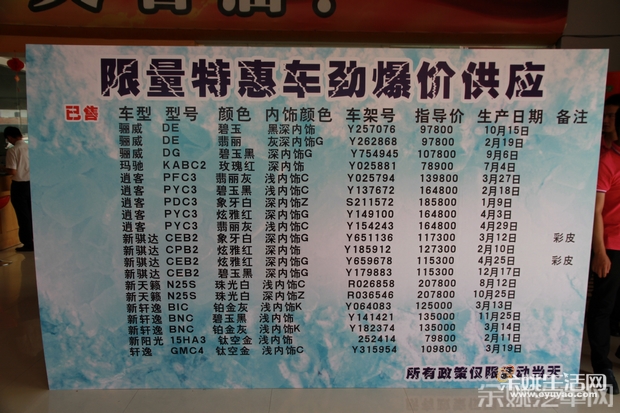 限量特惠车劲爆价供应
已售 车型 型号 颜色 内饰颜色 车架号 指导价 生产日期 备注
骊威 DE 碧玉 黑深内饰 Y257076 97800 10月15日
骊威 DE 翡丽 灰深内饰G Y262868 97800 2月19日
骊威 DG 碧玉黑 深内饰G Y754945 107800 9月6日
玛驰 KABC2 玫瑰红 深内饰 Y025881 78900 7月4日
逍客 PFC3 翡丽灰 浅内饰C Y025794 139800 3月27日
逍客 PYC3 碧玉黑 浅内饰C Y137672 164800 2月18日
逍客 PDC3 象牙白 深内饰Z S211572 185800 1月9日
逍客 PYC3 炫雅红 深内饰G Y149100 164800 4月3日
逍客 PYC3 翡丽灰 浅内饰C Y154243 164800 4月29日
新骐达 CEB2 象牙白 深内饰G Y651136 117300 3月12日 彩皮
新骐达 CPB2 炫雅红 深内饰G Y185912 127300 2月10日
新骐达 CEB2 炫雅红 浅内饰G Y659678 115300 4月25日 彩皮
新骐达 CEB2 碧玉黑 深内饰G Y179883 115300 12月17日
新天籁 N25S 珠光白 浅内饰C R026858 207800 8月12日
新天籁 N25S 珠光白 深内饰Z R036546 207800 10月25日
新轩逸 BIC 铂金灰 浅内饰K Y064083 125000 3月13日
新轩逸 BNC 碧玉黑 浅内饰 Y141421 135000 11月25日
新轩逸 BNC 铂金灰 浅内饰K Y182374 135000 3月14日
新阳光 15HA3 钛空金 深内饰 252414 79800 2月11日
轩逸 GMC4 钛空金 浅内饰C Y315954 109800 3月19日
所有政策仅限活动当天
余姚生活网
www.oyuyao.com
余姚汽车网